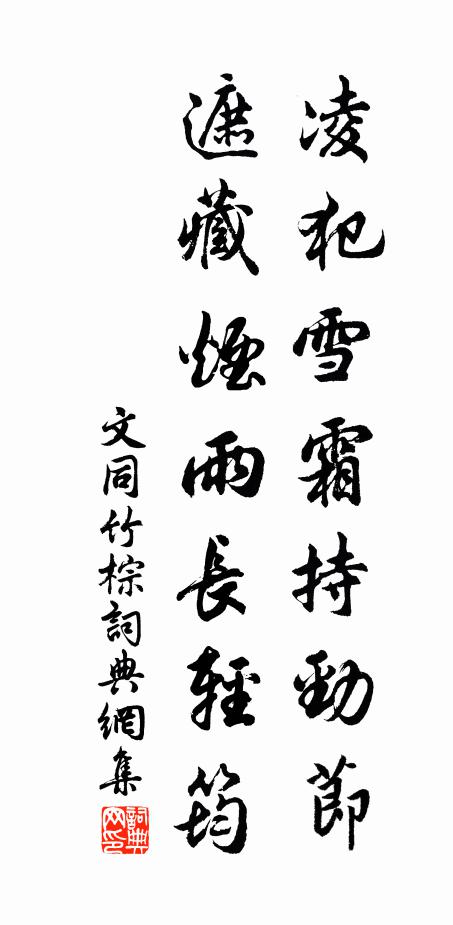 凌犯雪霜持勁節
遮藏煙雨長輕筠
文同竹棕詞典網集
詞典網印